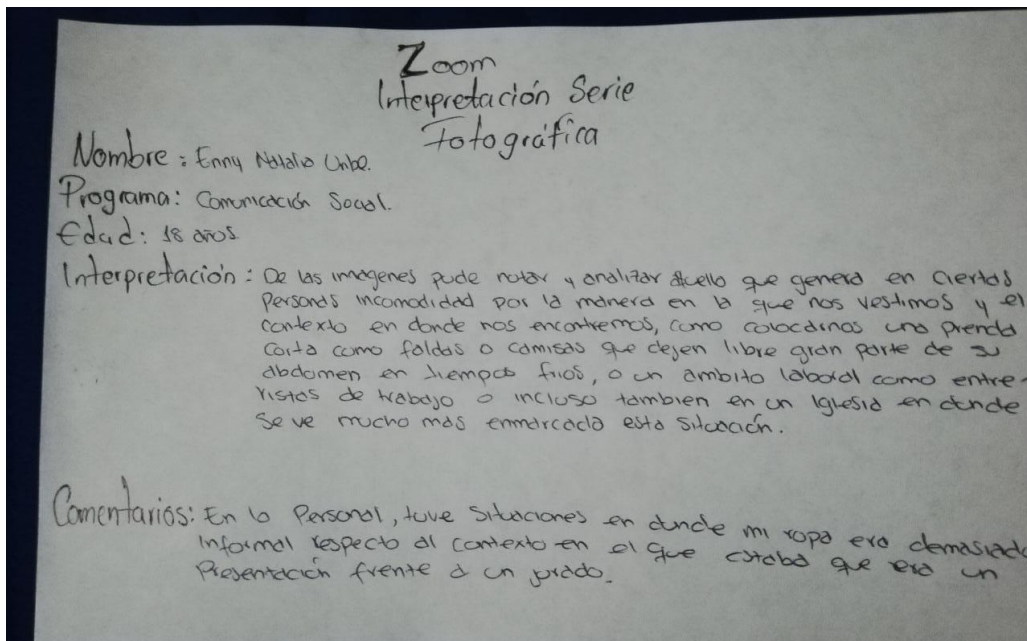 Zoom
Interpretación Serie
Fotográfica
Nombre: Enny Natalia Uribe.
Programa: Comunicación Social.
Edad: 18 años
Interpretación: De las imágenes pude notar y analizar aquello que genera en ciertas
personas incomodidad por la manera en la que nos vestimos y el
contexto en donde nos encontremos, como colocarnos una prenda
corta como faldas o camisas que dejen libre gran parte de su
abdomen en tiempos fríos, o un ambito laboral como entre-
vistas de trabajo o incluso tambien en un Iglesia en donde
se ve mucho más enmarcada esta situación.
Comentarios: En lo Personal, tuve situaciones en donde mi ropa era demasiado
Informal respecto al contexto en el que estaba que era un
Presentación frente a un jurado.